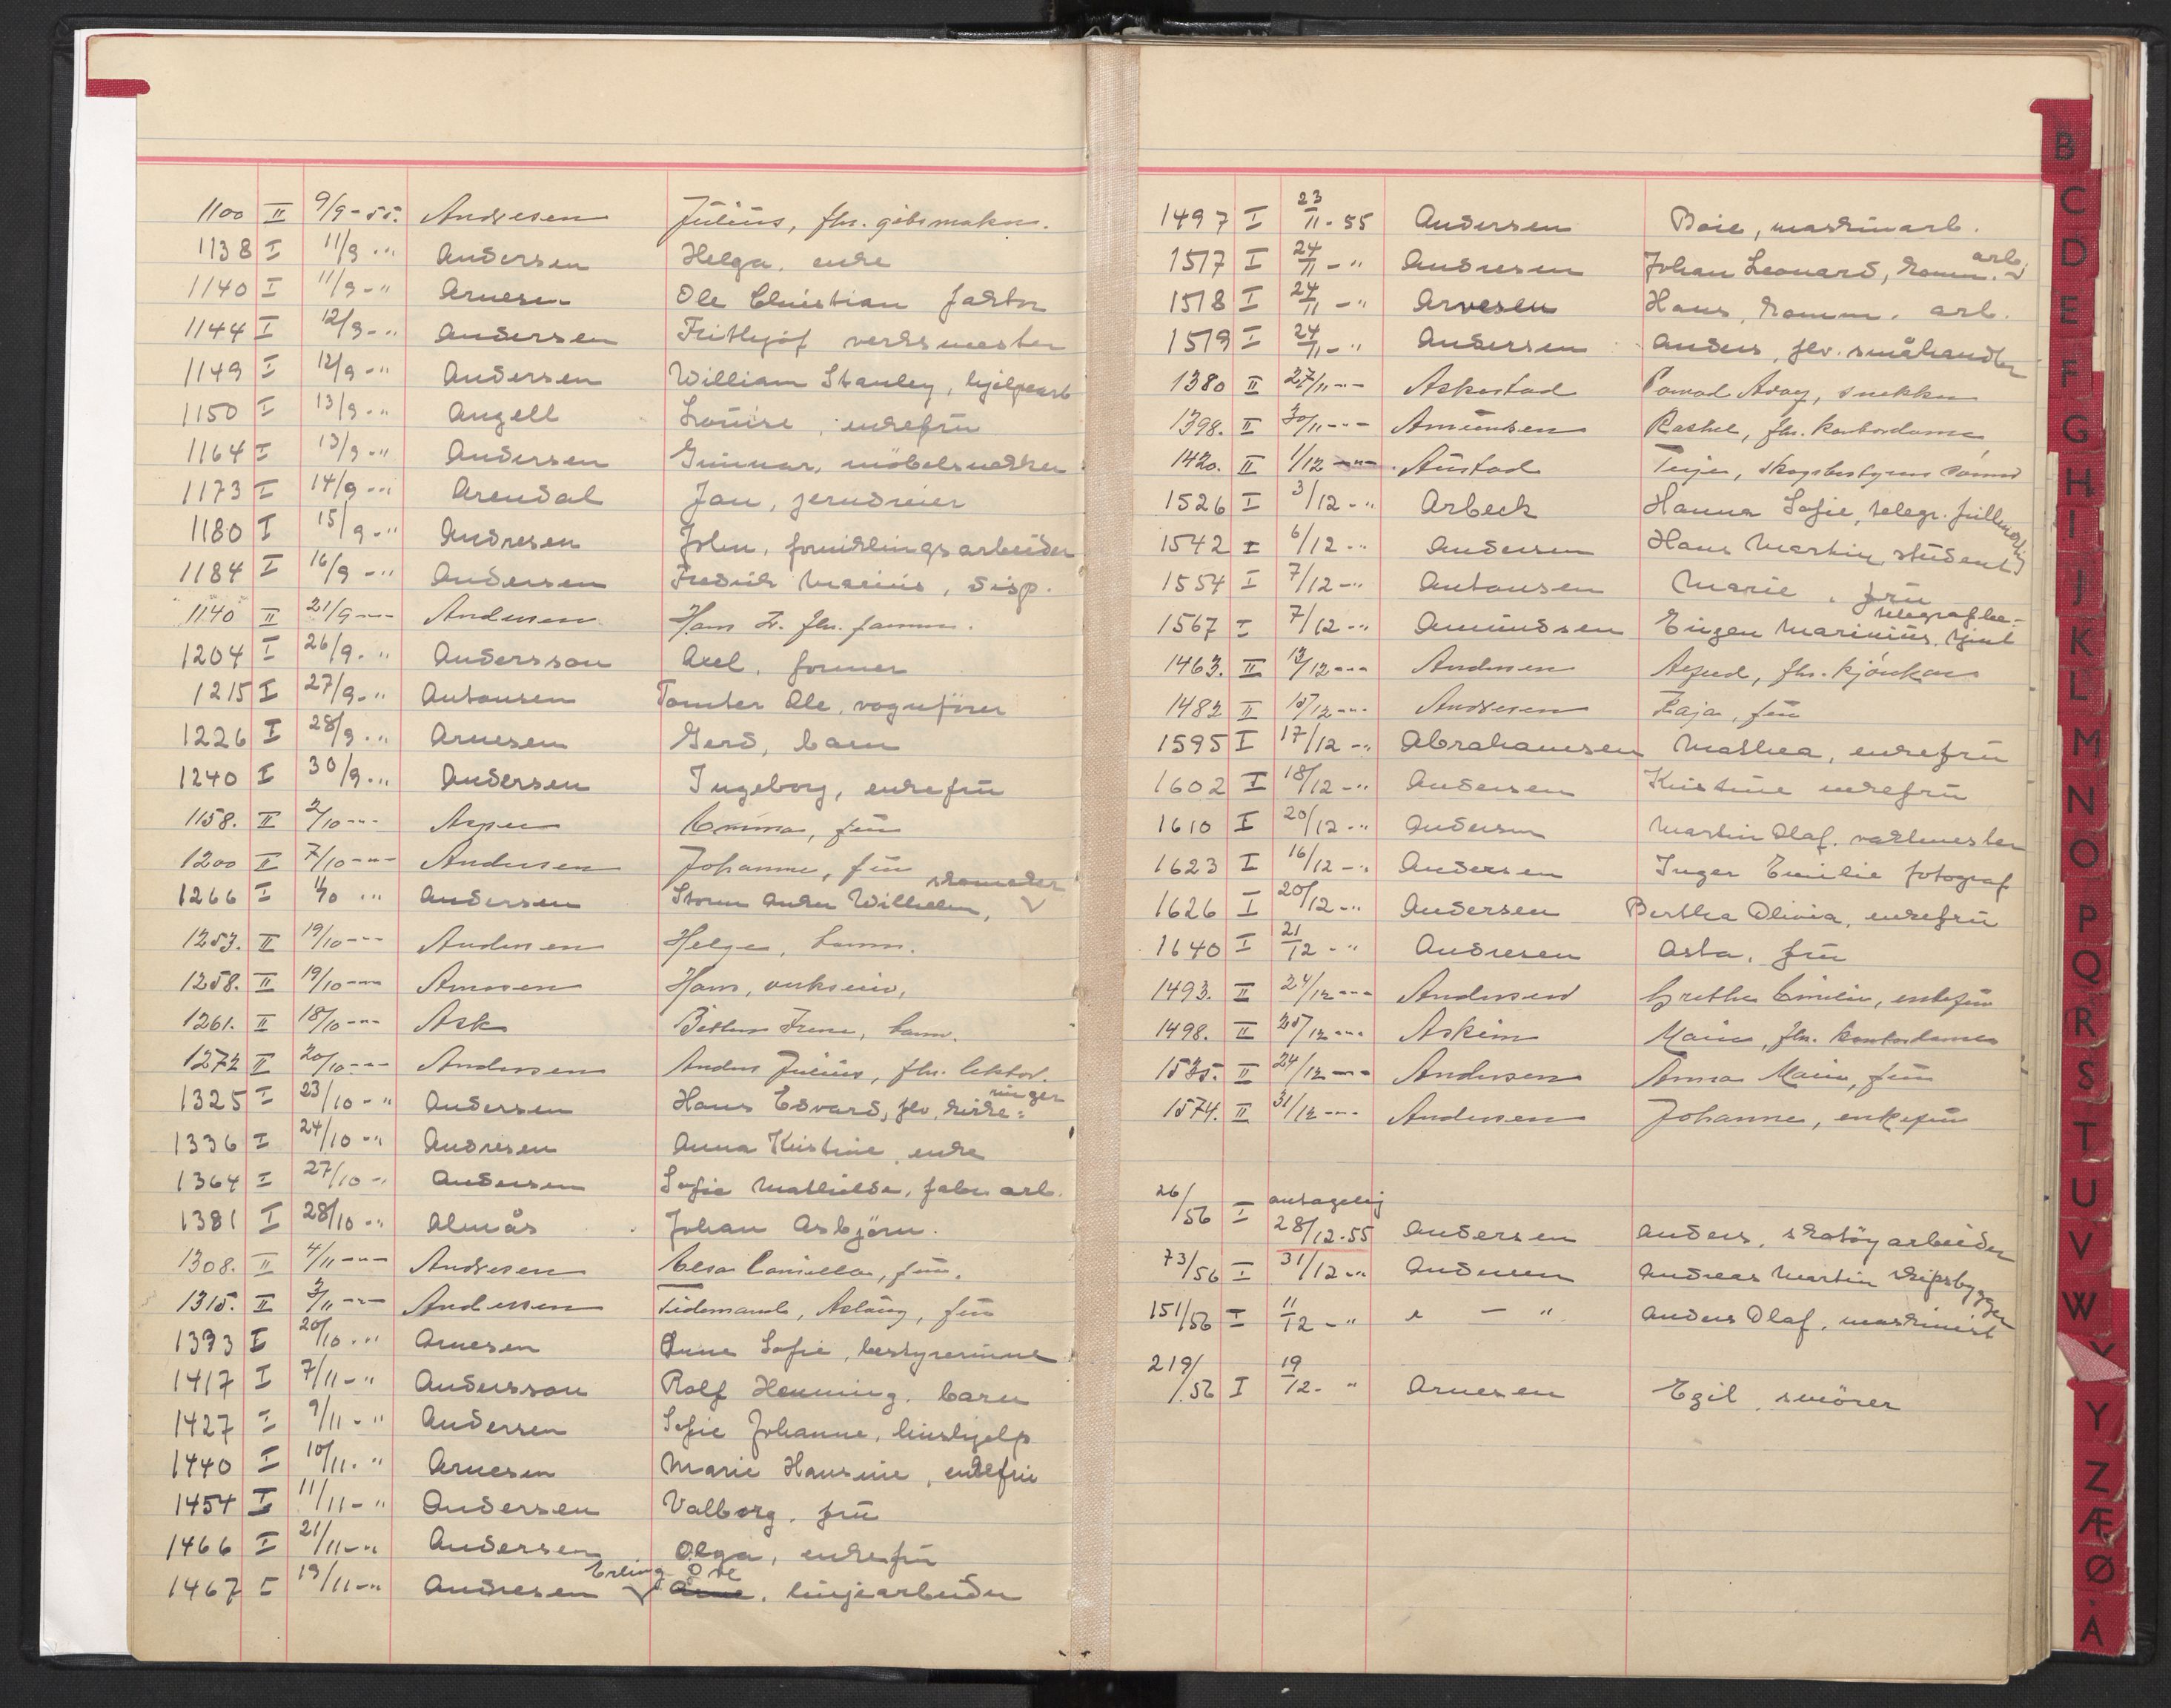 1100 II 9/9-55. Andresen Julius, fhv. gibsmaker.
1138 I 11/9 -" Andersen Helga, enke
1140 I 11/9 -" Arnesen Ole Christian faktor
1144 I 12/9 -" Andersen Frithjof verksmester
1149 I 12/9 -" Andersen William Stanley, hjelpearb
1150 I 13/9 -" Angell Louise, enkefrü
1164 I 13/9 -" Andersen Gunnar, möbelsnekker
1173 I 14/9 -" Arendal Jan, jerndreier
1180 I 15/9 -" Andresen John, forniklingsarbeider
1184 I 16/9 -" Andersen Fredrik Marius, disp.
1140 II 21/9 -" Andersen Hans Fr. fhv.
1204 I 26/9 -" Andersson Axel, former
1215 I 27/9 -" Antonsen Tomter Ole, vognfører
1226 I 28/9 -" Arnesen Gerd, barn
1240 I 30/9 -" Andersen Ingeborg, enkefrü
1158. II 2/10 -" Asper Emma, früe
1200 II 7/10 -" Andersen Johanne, frü
1266 I 1/10 -" Andersen Storm Anker Wilhelm, skomaker
1253. II 19/10 -" Andersen Helge, barn.
1258. II 19/10 -" Arnesen Hans, verkseier,
1261. II 18/10 -" Ask Irene, barn.
1272 II 20/10 -" Andersen Anders Julius, fhv. lektor.
1325 I 23/10 -" Andersen Hans Edvard, fhv. kirke= ringer
1336 I 24/10 -" Andresen Anna Kristine, enke
1364 I 27/10 - Andersen Sofie Mathilde, fabr. arb.
1381 I 28/10 -" Almås Johan Asbjörn.
1308. II 4/11 -" Andresen Elsa Camilla, früe.
1315. II 3/11 -" Andersen Tidemand, Aslaug, früe
1393 I 20/10 -" Arnesen Anne Sofie, bestyrerinne
1417 I 7/11 -" Andersson Rolf Henning, barn
1427 I 9/11 -" Andersen Sofie Johanne, hüshjelp
1440 I 10/11. " Arnesen Marie Hansine, enkefrü
1454 I 11/11 -" Andersen Valborg, frü
1466 I 21/11 -" Andersen Olga, enkefrü
1467 I 19/11 -" Andresen Erling Ove Arne, linjearbeider
1497 I 23/11-55 Andersen Boie, maskinarb.
1517 I 24/11 -" Andresen Johan Leonard, komm. arb.
1518 I 24/11 -" Arvesen Hans, komm. arb.
1519 I 24/11 -" Andersen Anders, fhv. småhandler
1380 II 27/11 -" Askestad Conrad Aray, snekker
1398. II 30/11 -" Amundsen Rachel, fhv. kontordame
1420. II 1/12 -" Austad Terje, skogbestyrers sønn
1526 I 3/12 -" Arbeck Hanna Sofie, telegr. füllmektig
1542 I 6/12 -" Andersen Hans Martin, student
1554 I 7/12 -" Antonsen Marie, frü
1567 I 7/12 -" Amundsen Eugen Marinius, telegrafbe-tjent
1463. II 13/12 -" Andersen fhv. kjøkken
1482 II 15/12 -" Andresen Kaja, früe
1595 I 17/12 -" Abrahamsen Mathea, enkefrü
1602 I 18/12 -" Andersen Kristine enkefrü
1610 I 20/12 -" Andersen Martin Olaf, vaktmester
1623 I 16/12 -" Andersen Inger Emilie fotograf
1626 I 20/12 -" Andersen Bertha Olivia, enkefrü
1640 I 21/12 -" Andresen Asta, frü
1493. II 24/12 -" Andersen Grethe Emilie, enkefrü
1498. II 25/12 -" Askim Marie, fhv. kontordame
1535. II 24/12 -" Andersen Anna Marie, früe
1574. II 31/12 -" Andersen Johanne, enkefrü
26/56 I antagelig 28/12-55 Andersen Anders, skotøyarbeider
73/56 I 31/12 -" Andersen Andreas Martin skipsbygger
151/56 I 11/12 -" " - " Anders Olaf, maskinist
219/56 I 19/12 - " Arnesen Egil, smörer
B
C
D
E
F
G
H
I
J
K
L
M
N
O
P
Q
R
S
T
U
V
W
Y
Z
Æ
Ø
Å